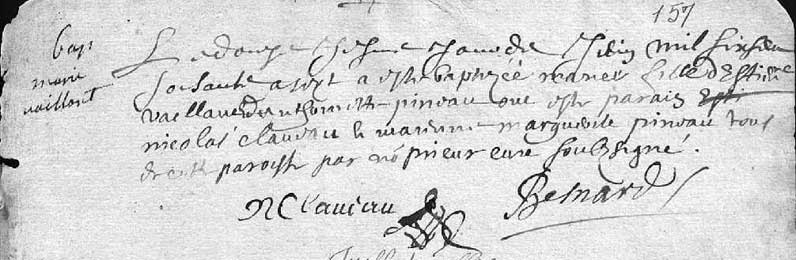 157
bap
marie
vaillant
Le douze iesme jour de Juin mil six sens
soisante a sept a este baptizée marie fille d'Estiene
vaillant & d'anthoinette pineau ont este parain
nicolas claveau la marienne marguerite pineau tous
de cette paroisse par no9 prieur curé soubzsigné.
N Claveau Besnard